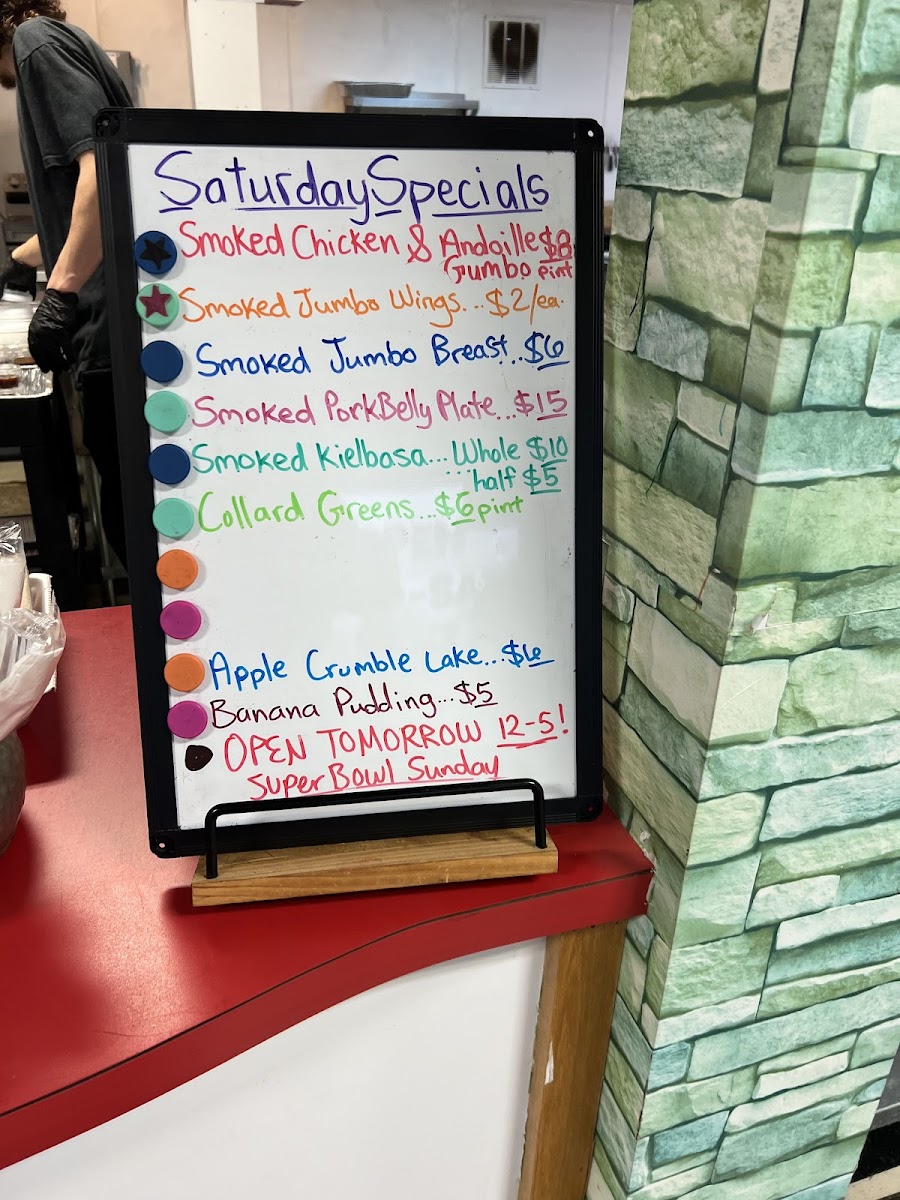 Saturday Specials
Smoked Chicken & Andouille $8
Gumbo pint
Smoked Jumbo Wings... $2/ea.
Smoked Jumbo Breast..$6
Smoked Pork Belly Plate...$15
Smoked Kielbasa... Whole $10
... half $5
Collard Greens...$6 pint
Apple Crumble Cake...$6
Banana Pudding...$5
OPEN TOMORROW 12-5!
Super Bowl Sunday